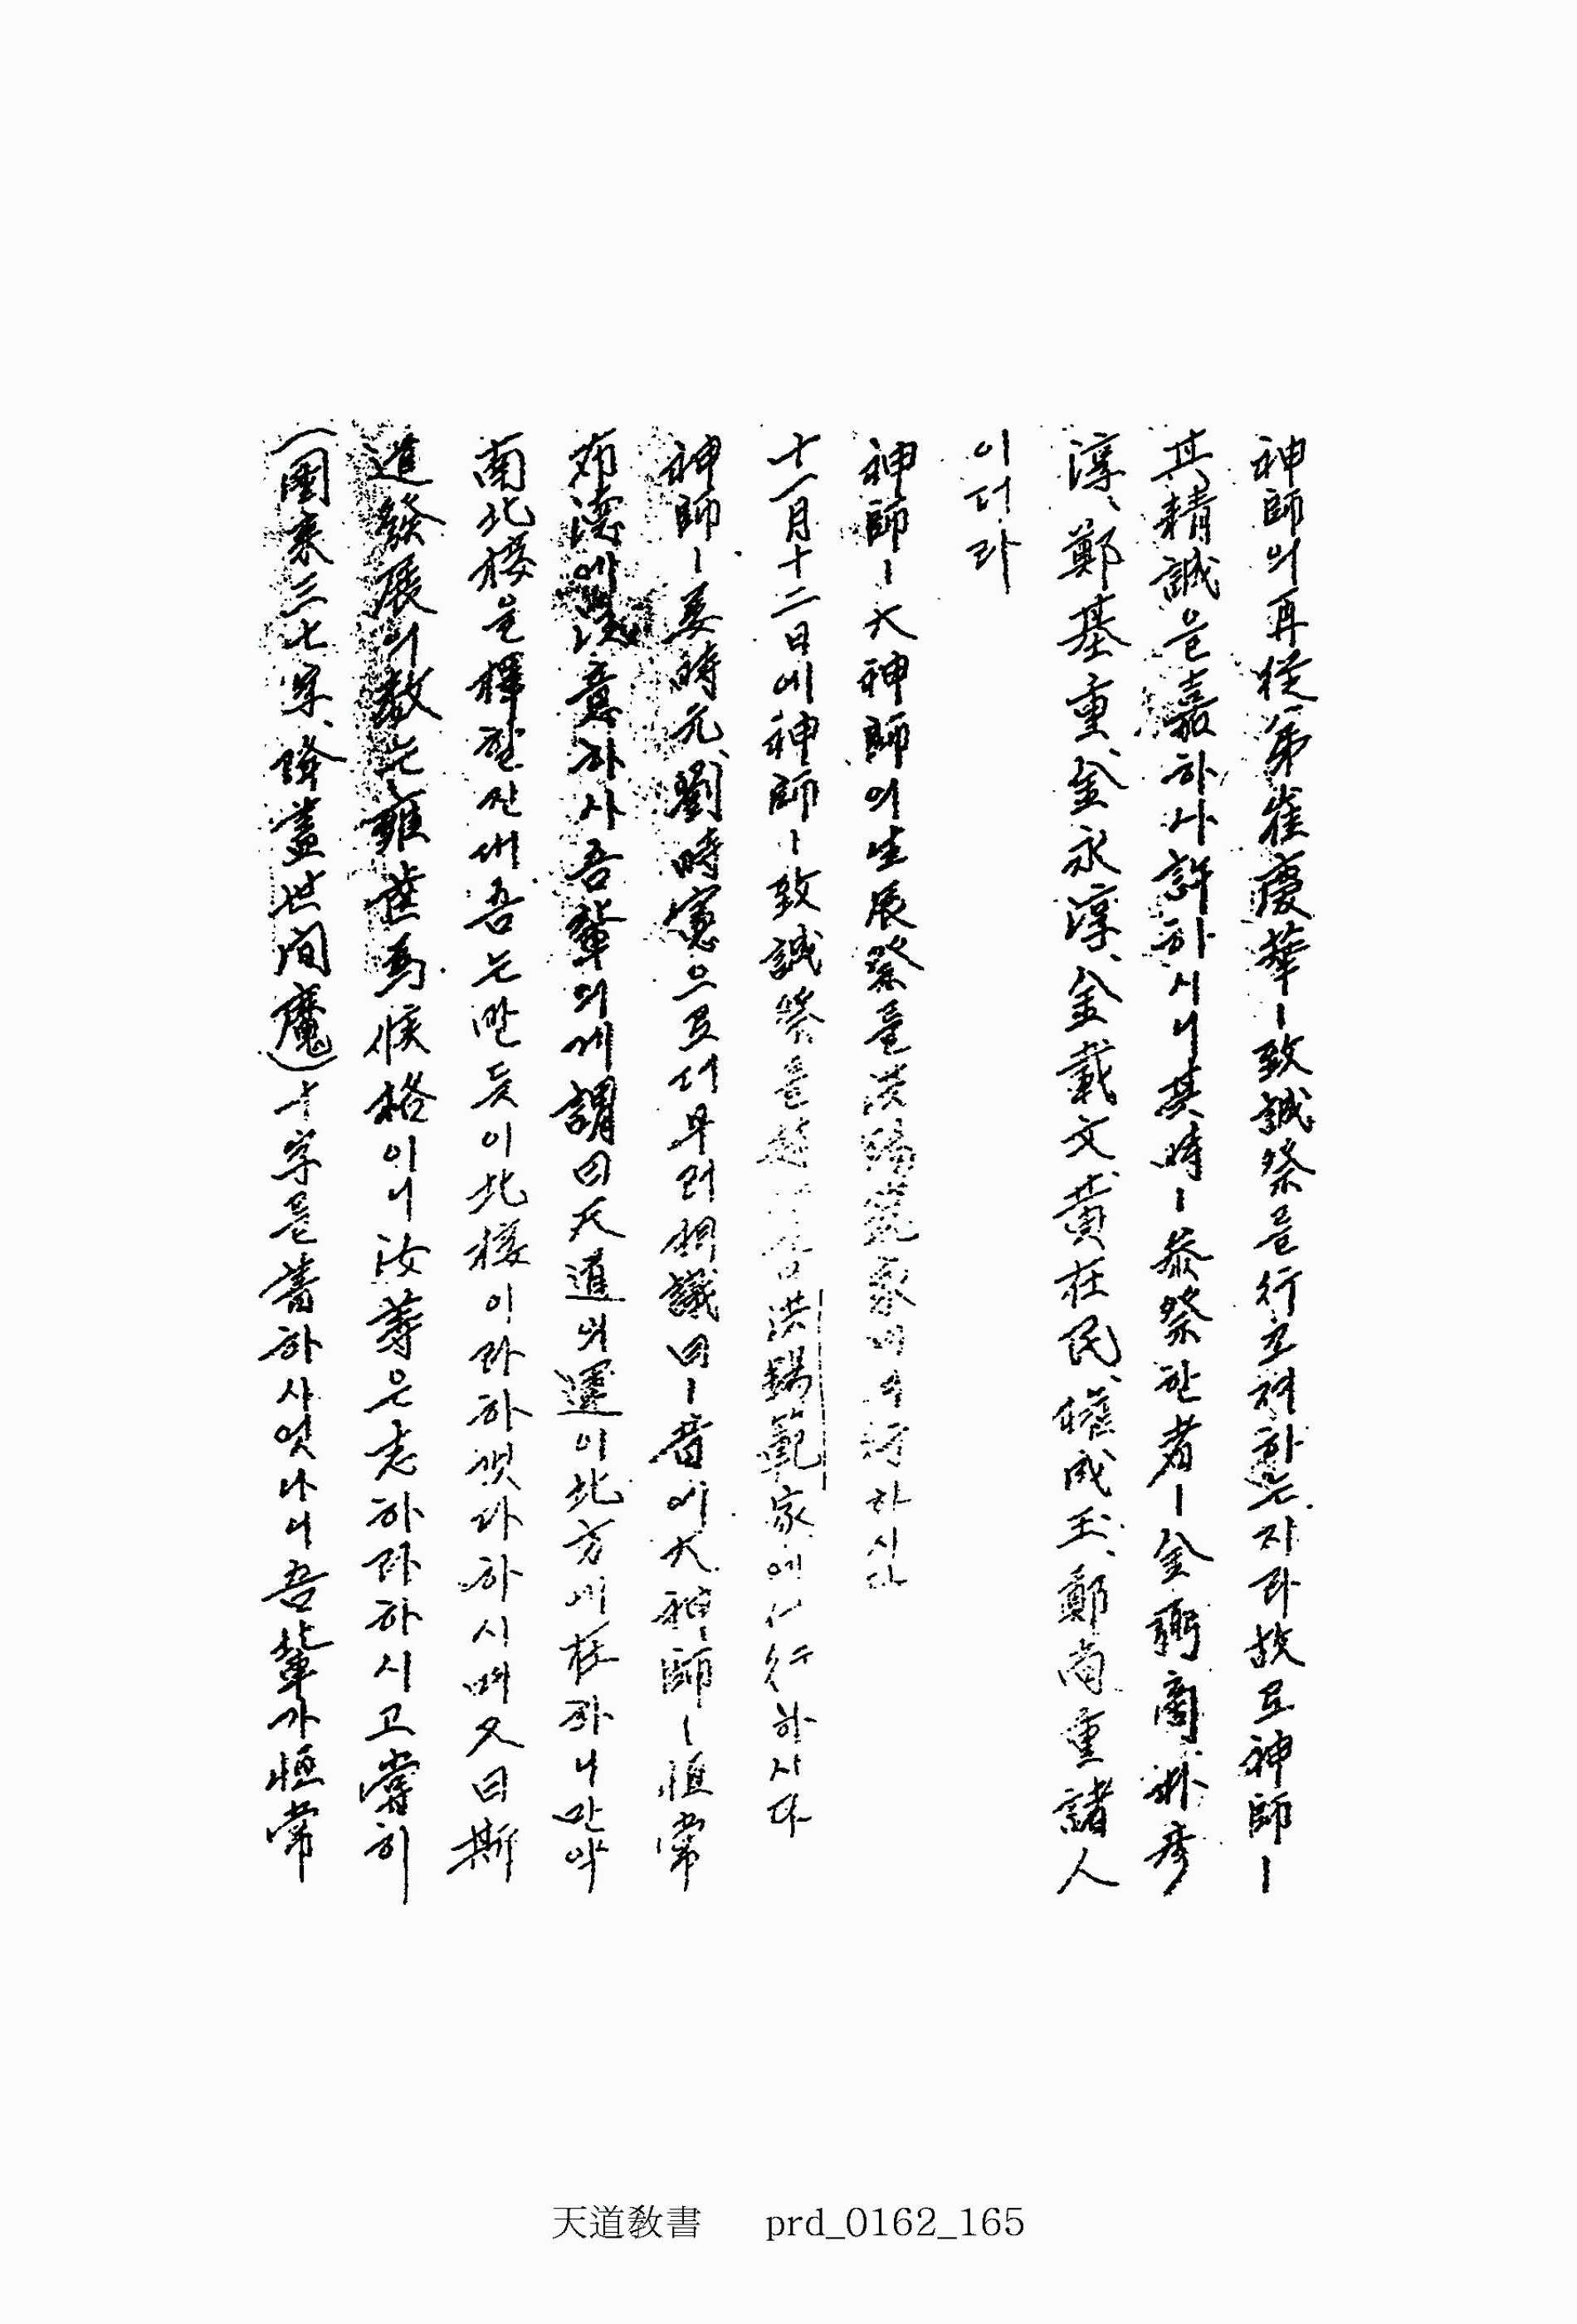 神師의再從弟崔慶華ㅣ致誠祭를行코저하는자라故로神師ㅣ
其精誠을嘉하사許하시니其時ㅣ參祭한者ㅣ金弼商朴彦
淳、鄭基重、金永淳、金載文、黃在民、權成玉、鄭尙重諸人
이더라
神師ㅣ大神師의生辰祭를洪錫範家에서行하시다
十一月十二日에神師ㅣ致誠祭를 洪錫範家에 行하시다
神師ㅣ姜時元、劉時憲으로더부러相議曰ㅣ昔에大神師ㅣ恒常
布德에 意하사吾輩의게謂曰天道의運이北方에在하니만약
南北接을擇할진대吾는반듯이北接이라하겟다하시며又曰斯
道發展의敎는 이니汝等은志하라하시고嘗히
(圖來三七字、降盡世間魔)十字를書하사엿나니吾輩가恒常
天道敎書 prd_0162_165